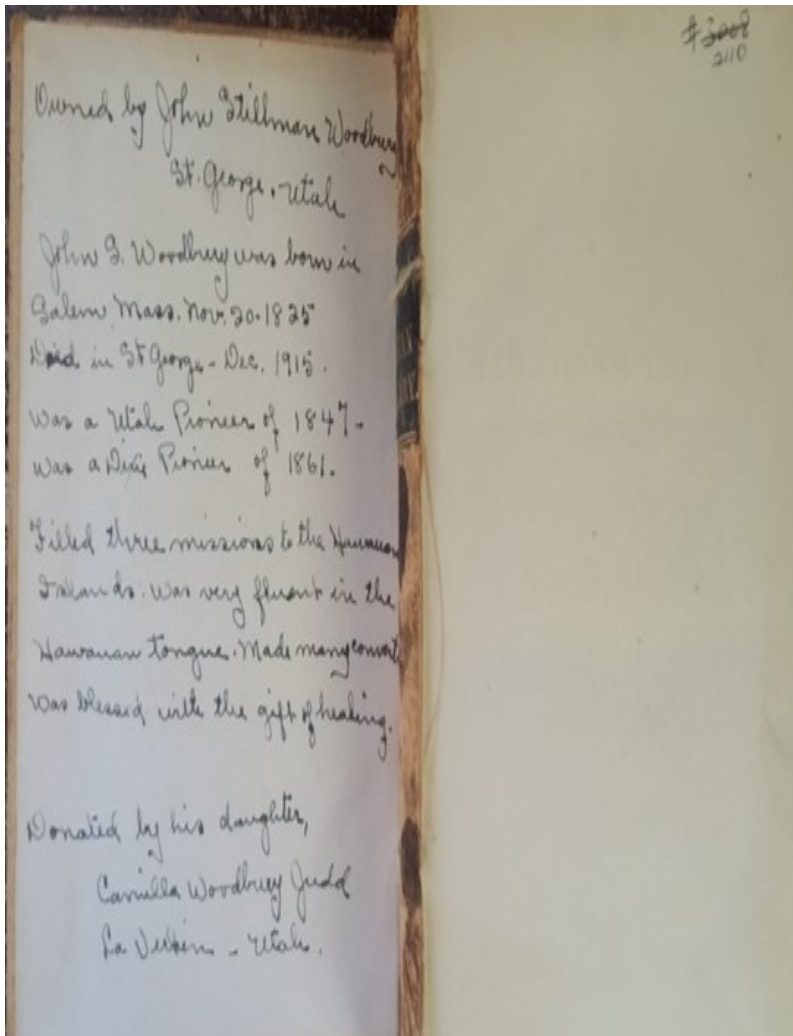 Owned by John Stillman Woodbury
St. George, Utah
John S. Woodbury was born in
Salem, Mass. Nov. 20. 1825
Died in St George - Dec. 1915.
Was a Utah Pioneer of 1847.
Was a Dixie Pioneer of 1861.
Filled three missions to the Hawaiian
Islands. Was very fluent in the
Hawaiian tongue. Made many convert
Was blessed with the gift of healing.
Donated by his daughter,
Camilla Woodbury Judd
La Verkin - Utah.
#
2110